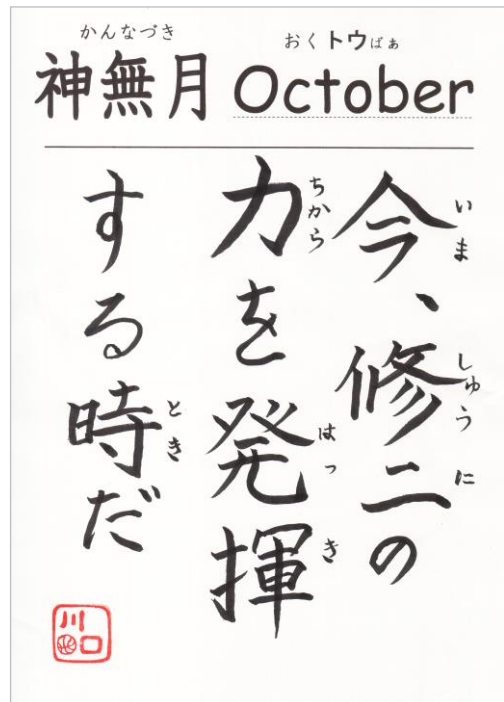 かんなづき おくトウばぁ
神無月 October
今、修二の
いま しゅうに
力を発揮
ちから はっき
する時だ
とき
川口